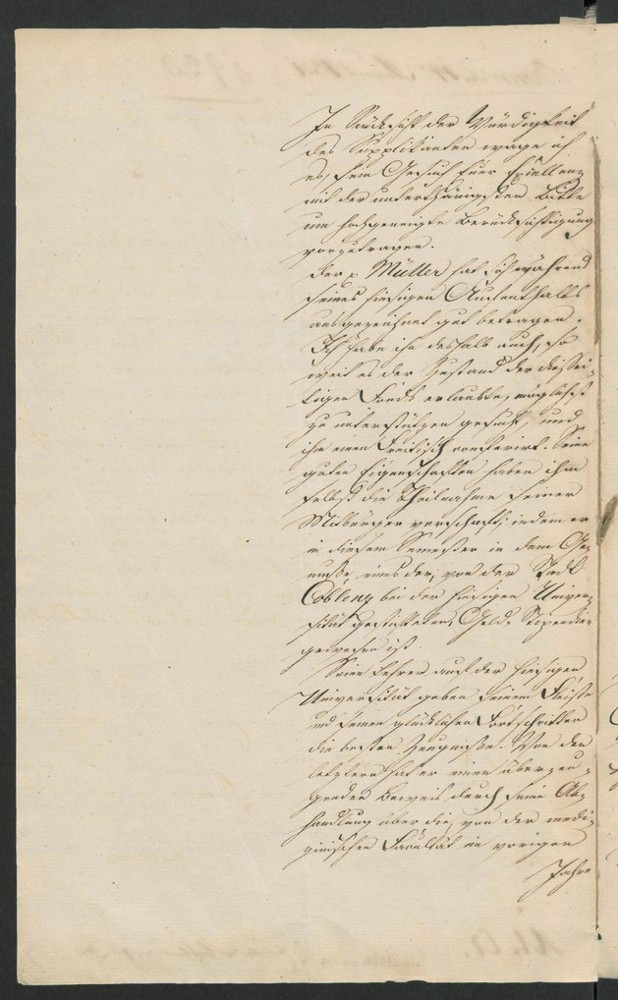 In Rücksicht der Würdigkeit
des Supplikanten wage ich
es, sein Gesuch Euer Excellenz
mit der unterthänigsten Bitte
um hochgeneigte Berücksichtigung
vorzutragen.
Der p Müller hat sich während
seines hiesigen Aufenthalts
ausgezeichnet gut betragen.
Ich habe ihn deshalb auch, so
weit es der Zustand der diessei-
tigen Fonds erlaubte, möglichst
zu unterstützen gesucht, und
ihm einen Freitisch conferirt. Seine
guten Eigenschaften haben ihm
selbst die Theilnahme seiner
Mitbürger verschafft, indem er
in diesem Semester in dem Ge-
nusse eines der, von der Stadt
Coblenz bei der hiesigen Univer-
sität gestifteten, Geld-Stipendien
gewesen ist.
Seine Lehrer auf der hiesigen
Universität geben seinem Fleisse
und seinen glücklichen Fortschritten
die besten Zeugnisse. Von den
letztern hat er einen überzeu-
genden Beweis durch seine Ab-
handlung über die, von der medi-
zinischen Facultät im vorigen
Jahre